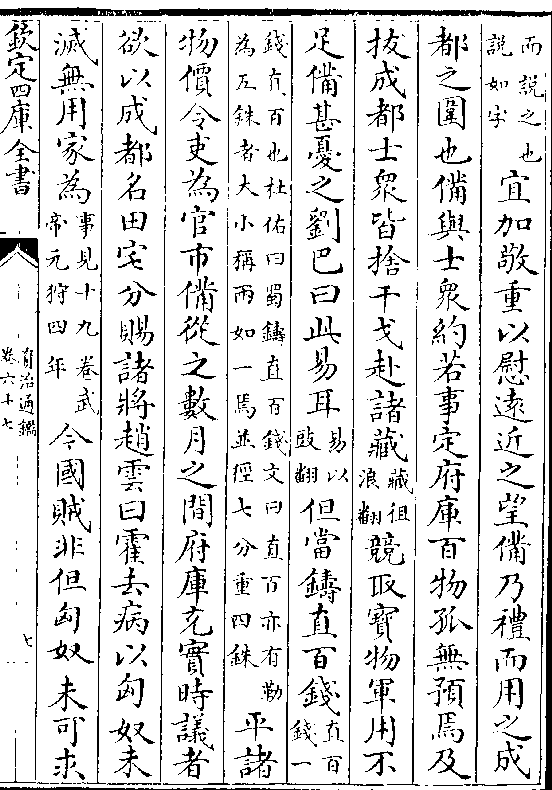 而說之也說如字宜加敬重以慰遠近之望備乃禮而用之成
都之圍也備與士衆約若事定府庫百物孤無預焉及
拔成都士衆皆捨干戈赴諸藏藏徂浪翻競取寳物軍用不
足備甚憂之劉巴曰此易耳易以豉翻但當鑄直百錢直百錢一
錢直百也杜佑曰蜀鑄直百錢文曰直百亦有勒為五銖者大小稱兩如一焉並徑七分重四銖平諸
物價令吏為官市備從之數月之間府庫充實時議者
欲以成都名田宅分賜諸將趙雲曰霍去病以匈奴未
滅無用家為事見十九卷武帝元狩四年今國賊非但匈奴未可求
欽定四庫全書
資治通鑑
卷六十七
七